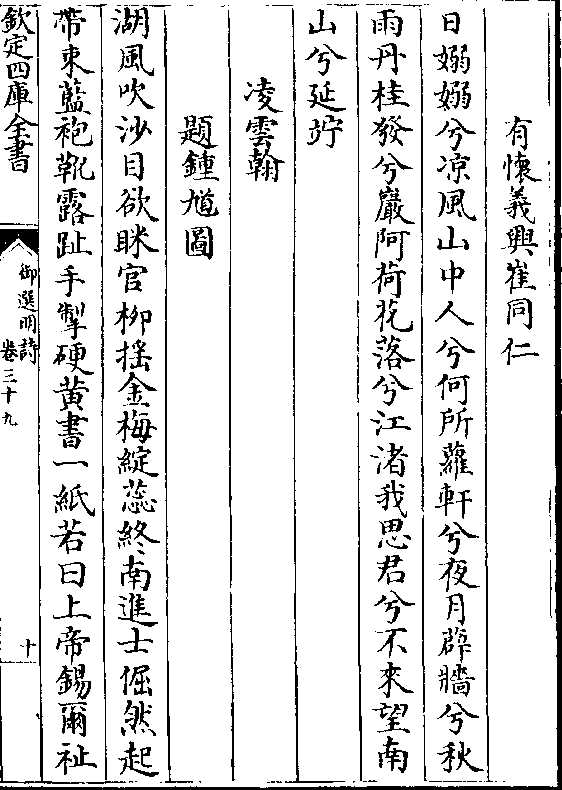 有懷義興崔同仁
日嫋嫋兮凉風山中人兮何所蘿軒兮夜月辟牆兮秋
雨丹桂發兮巖阿荷花落兮江渚我思君兮不來望南
山兮延竚
凌雲翰
題鍾馗圖
湖風吹沙目欲眯官柳揺金梅綻蕊終南進士倔然起
帶束藍袍靴露趾手掣硬黄書一紙若曰上帝錫爾祉
欽定四庫全書
御選明詩
卷三十九
十